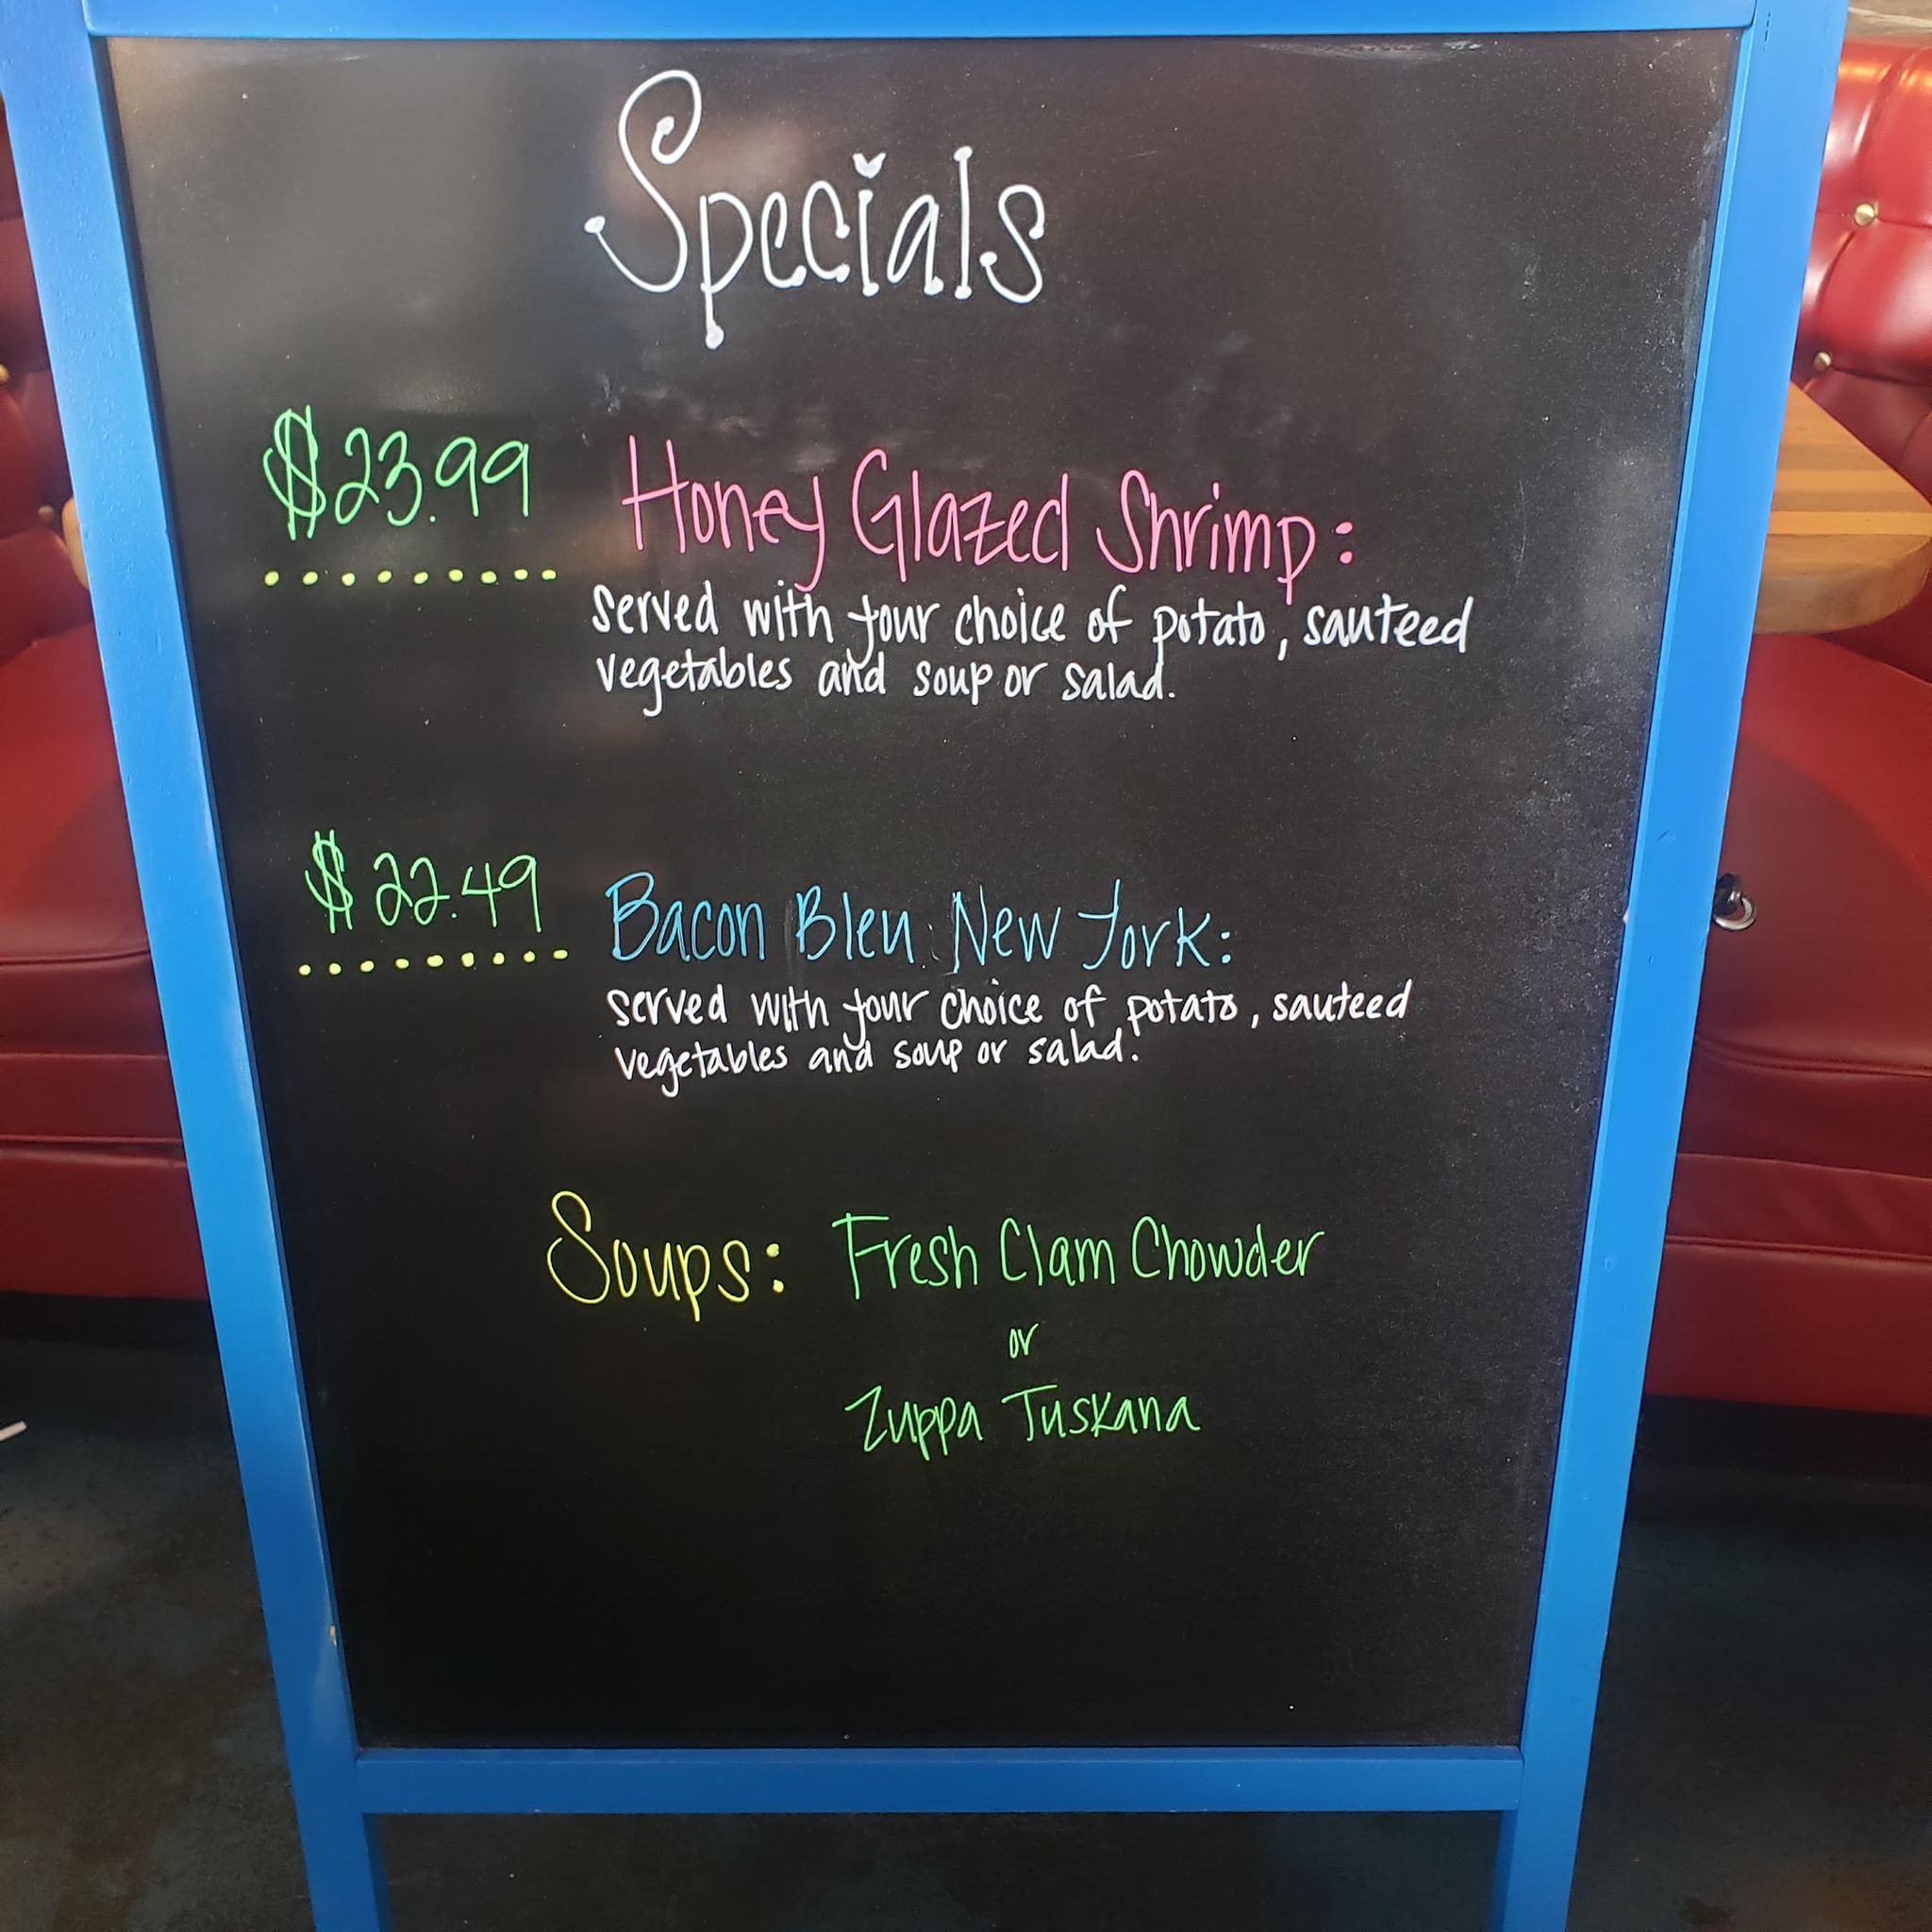 Specials
$23.99 Honey Glazed Shrimp:
served with your choice of potato, sauteed
vegetables and soup or salad.
$22.49 Bacon Bleu New York:
served with your choice of potato, sauteed
vegetables and soup or salad.
Soups: Fresh Clam Chowder
or
Zuppa Tuskana